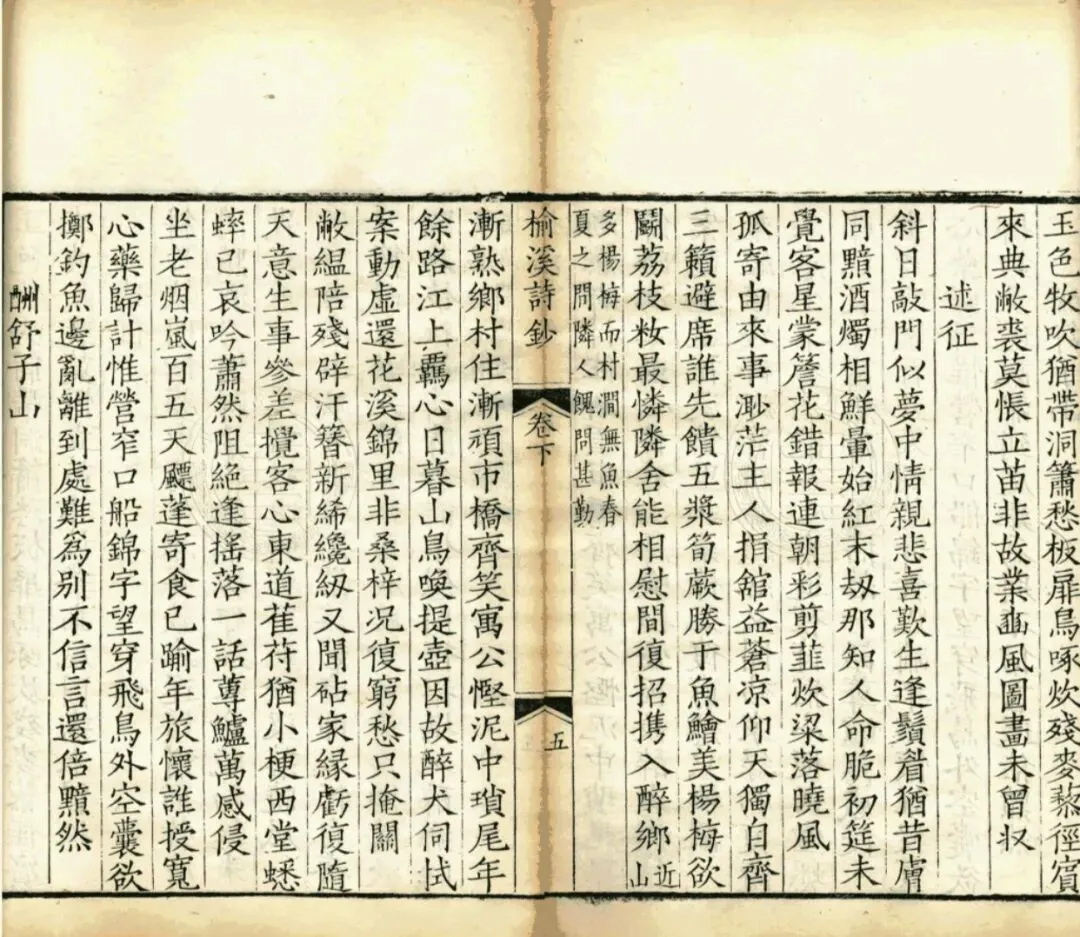 玉色牧吹猶帶洞簫愁板扉鳥啄炊殘麥藜徑賓
來典敝裘莫悵立苗非故業豳風圖畫未曾収
述征
斜日敲門似夢中情親悲喜歎生逢鬚眉猶昔膚
同黯酒燭相鮮暈始紅末刼那知人命脆初筵未
覺客星蒙簷花錯報連朝彩剪韮炊粱落曉風
孤寄由來事渺茫主人捐舘益蒼凉仰天獨白齊
三籟避席誰先饋五漿筍蕨勝于魚鱠美楊梅欲
鬭荔枝妝最憐隣舍能相慰間復招携入醉鄉近山
多楊梅而村澗無魚春
夏之間隣人餽問甚勤
榆溪詩鈔
卷下
五
漸熟鄉村住漸頑市橋齊笑寓公慳泥中瑣尾年
餘路江上驫心日暮山鳥喚提壺因故醉犬伺拭
案動虛還花溪錦里非桑梓况復窮愁只掩關
敝緼陪殘辟汗簪新絺纔紉又聞砧家緣虧復隨
天意生事參差攪客心東道萑苻猶小梗西堂蟋
蟀已哀吟蕭然阻絕逢摇落一話蓴鱸萬感侵
坐老烟嵐百五天飃蓬寄食已踰年旅懷誰授寬
心藥歸計惟營窄口船錦字望穿飛鳥外空囊欲
擲釣魚邊亂離到處難爲别不信言還倍黯然
酬舒子山